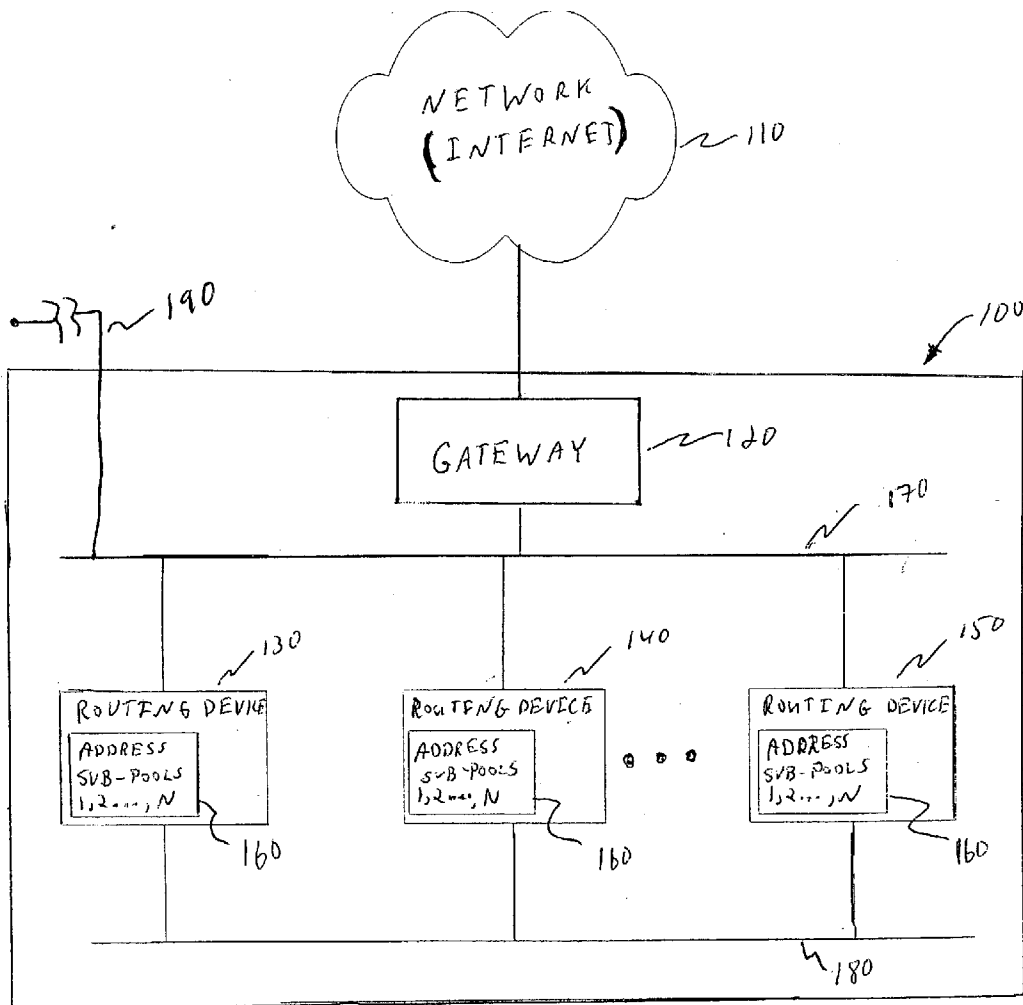 NETWORK
(INTERNET)
110
190
100
GATEWAY
120
170
130
140
150
ROUTING DEVICE
ADDRESS
SUB-POOLS
1,2...,N
160
ROUTING DEVICE
ADDRESS
SUB-POOLS
1,2...,N
160
ROUTING DEVICE
ADDRESS
SUB-POOLS
1,2...,N
160
180